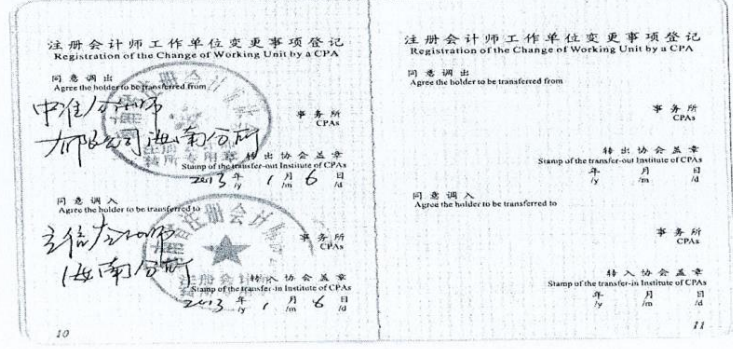 注册会计师工作单位变更事项登记
Registration of the Change of Working Unit by a CPA
同意调出
Agree the holder to be transferred from
中准会计师
有限公司海南分所
事务所
CPAs
转所专用章
转出协会盖章
Stamp of the transfer-out Institute of CPAs
2013 年 1 月 6 日
/y /m /d
同意调入
Agree the holder to be transferred to
立信会计师
海南分所
事务所
CPAs
转入协会盖章
Stamp of the transfer-in Institute of CPAs
2013 年 1 月 6 日
/y /m /d
10
注册会计师工作单位变更事项登记
Registration of the Change of Working Unit by a CPA
同意调出
Agree the holder to be transferred from
事务所
CPAs
转出协会盖章
Stamp of the transfer-out Institute of CPAs
年 月 日
/y /m /d
同意调入
Agree the holder to be transferred to
事务所
CPAs
转入协会盖章
Stamp of the transfer-in Institute of CPAs
年 月 日
/y /m /d
11